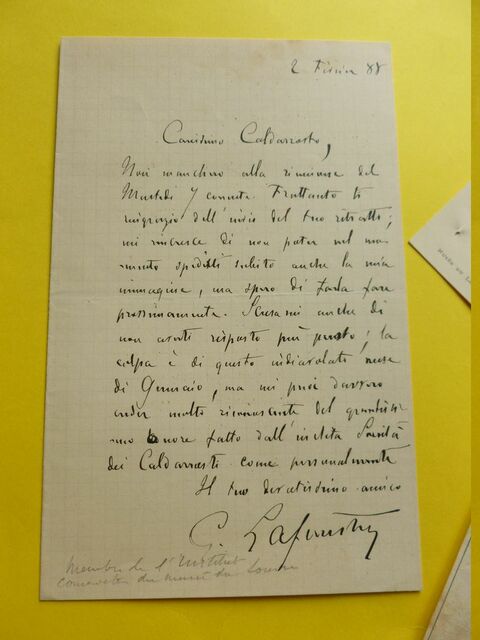 2 Février 88
Carissimo Caldarrosto,
Non mancherò alla riunione del
Martedì 7 corrente. Frattanto ti
ringrazio dell' invio del tuo ritratto;
mi rincresce di non poter nel mo
mento spedirti subito anche la mia
immagine, ma spero di farla fare
prossimamente. Scusami anche di
non averti risposto più presto; la
colpa è di questo indiavolato mese
di Gennaio, ma mi puoi davvero
creder molto riconoscente del grandissi
mo onore fatto dall' inclita Società
dei Caldarrosti come personalmente
Il tuo devotissimo amico
G. Lafenestre
Membre de l' Institut
Conservateur du musée du Louvre
MUSÉE DU